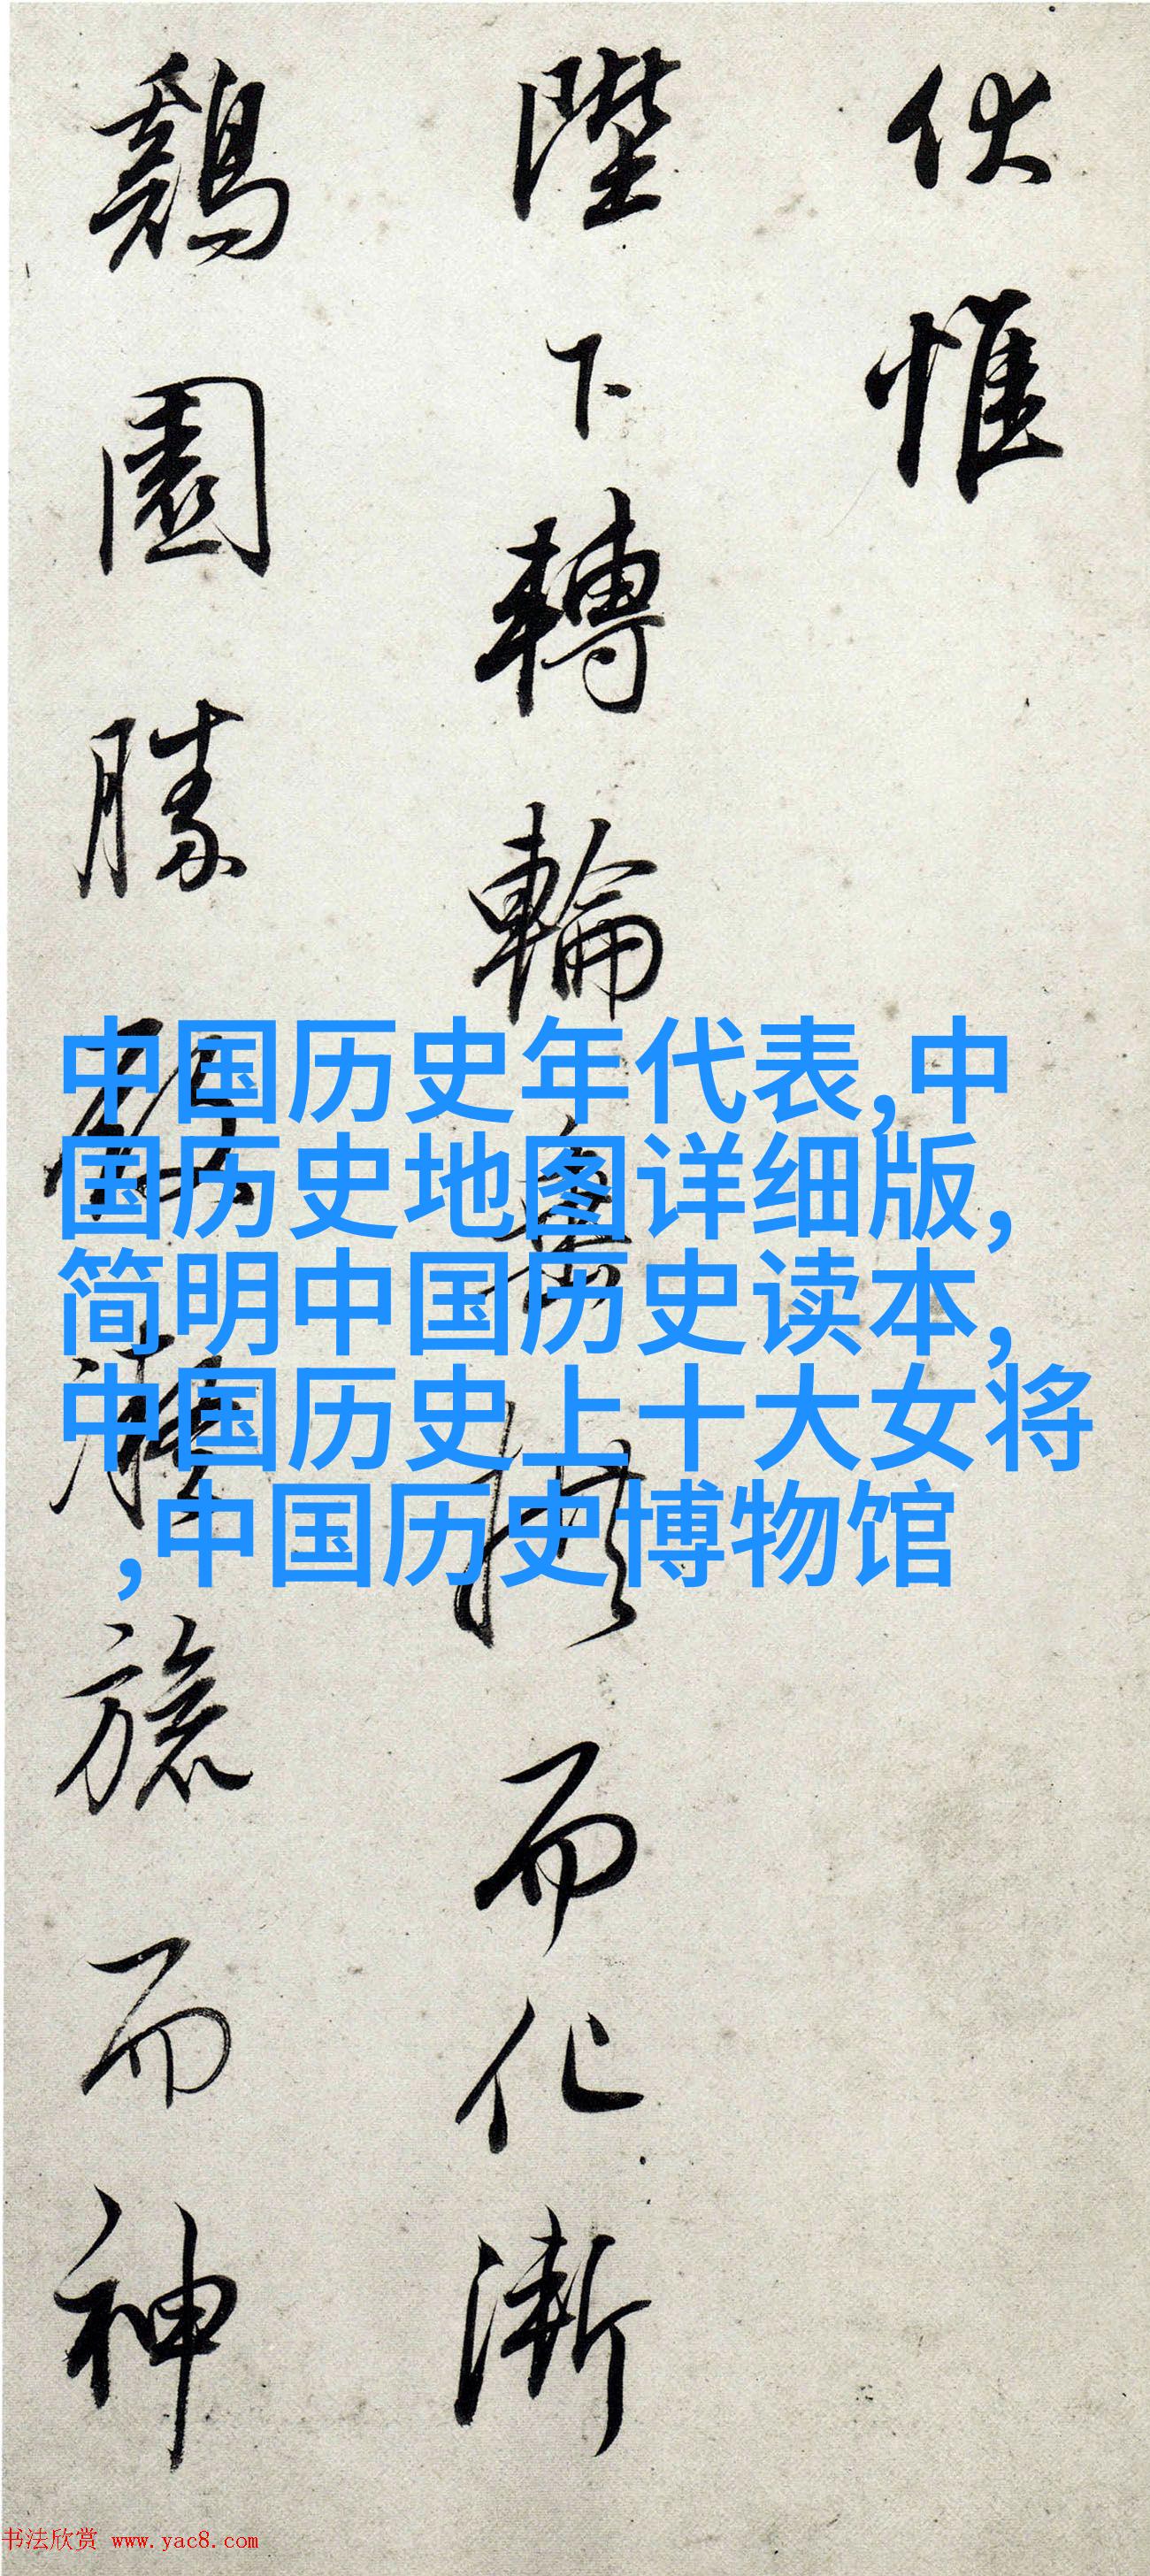 伏惟
陛下轉輪垂拱而化漸
鷄園勝殿凝旒而神
中国历史年代表,中
国历史地图详细版,
简明中国历史读本,
中国历史上十大女将
,中国历史博物馆
书法欣赏 www.yac8.com